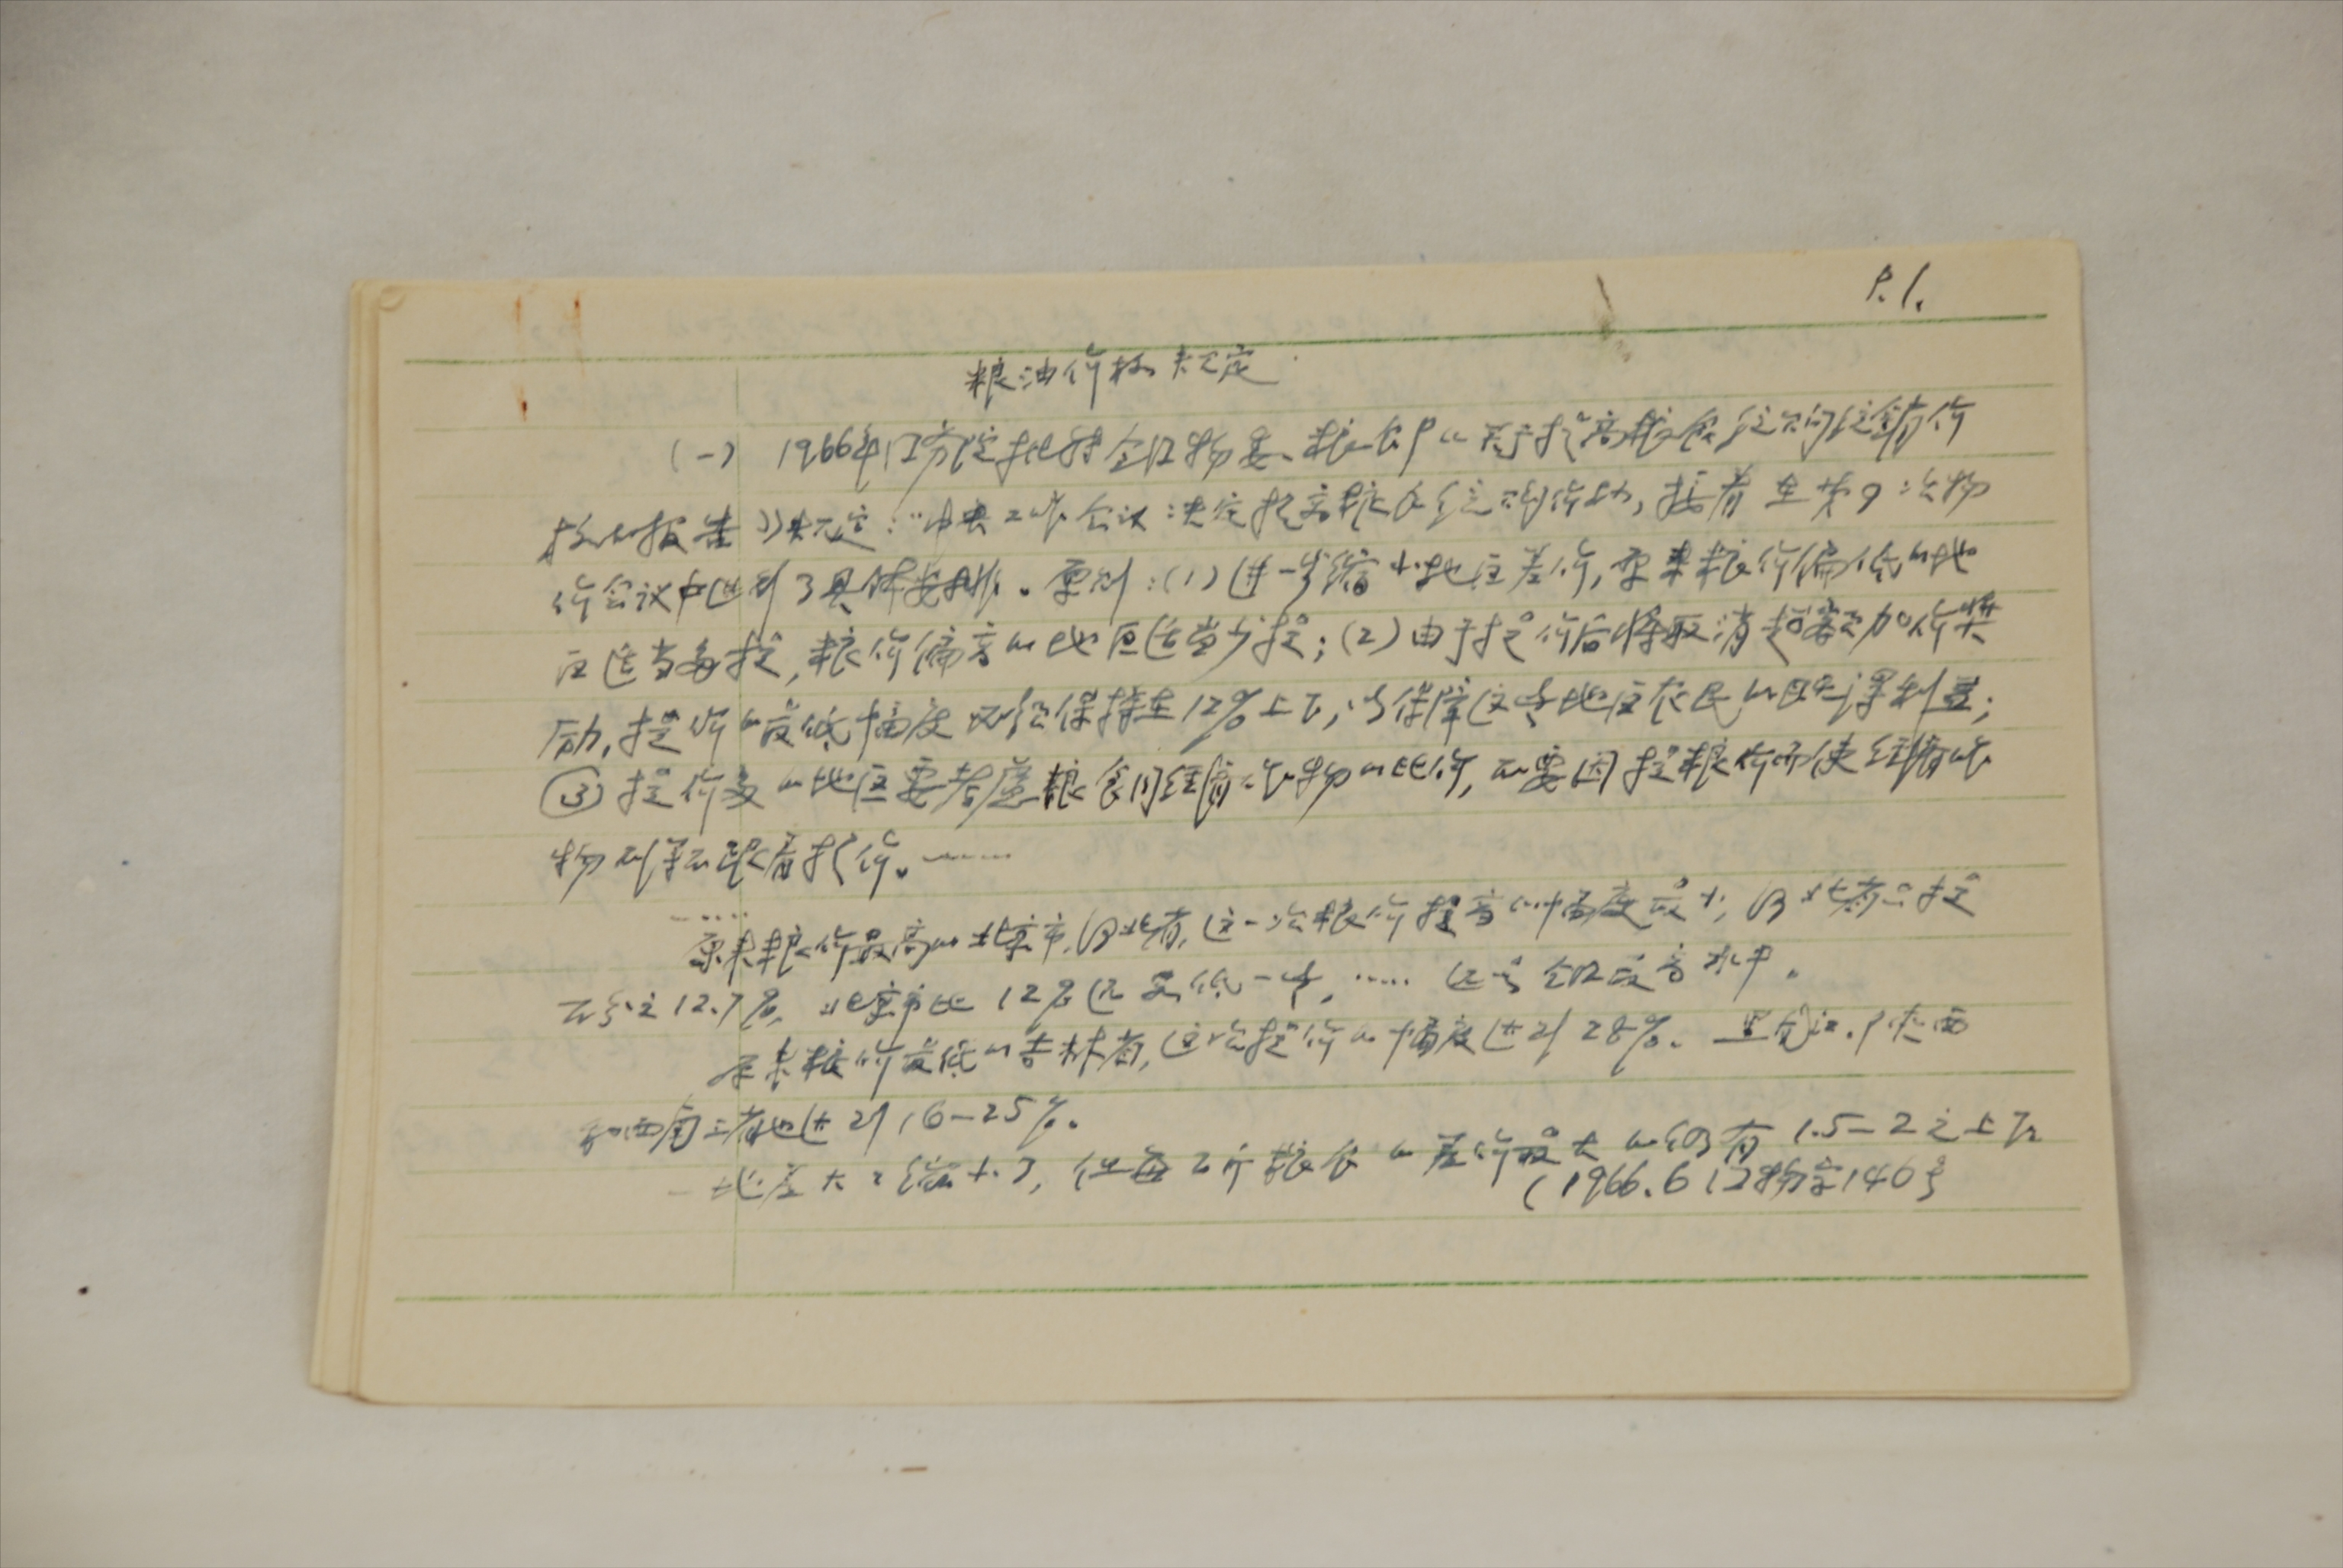 P.1.
粮油价格规定
(一) 1966年国务院批转全国物委、粮食部《关于提高粮食统购统销价
格的报告》规定:"中央工作会议决定提高粮食统购价格,接着在第9次物
价会议中进行了具体安排。原则:(1)进一步缩小地区差价,原来粮价偏低的地
区适当多提,粮价偏高的地区适当少提;(2)由于提价后将取消超购加价奖
励,提价的最低幅度必须保持在12%上下,以保障这些地区农民的既得利益;
(3)提价多的地区要考虑粮食同经济作物的比价,不要因提粮价而使经济作
物不得不跟着提价。……
……
原来粮价最高的北京市、河北省,这一次粮价提高的幅度最小,河北省只提
百分之12.7%,北京市比12%还要低一些,……还是全国最高水平。
原来粮价最低的吉林省,这次提价的幅度达到28%。黑龙江、陕西
和西南三省也达到16—25%。
地差大大缩小了,但每百斤粮食的差价最大的仍有1.5—2元上下
(1966.6 国物字140号